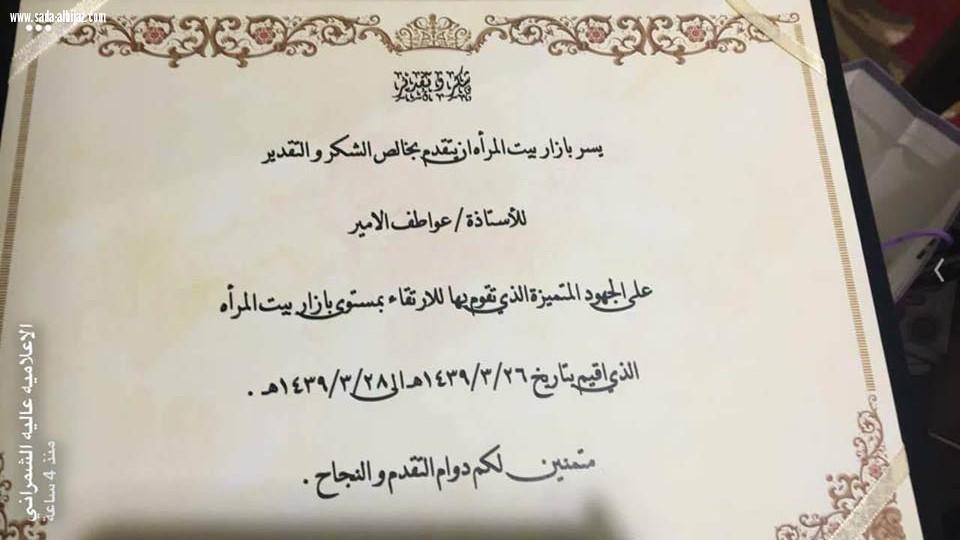 www.sada-alhijaz.com
شكر و تقدير
يسر بازار بيت المرأه ان يتقدم بخالص الشكر و التقدير
للأستاذة / عواطف الامير
على الجهود المتميزة الذي تقوم بها للارتقاء بمستوى بازار بيت المرأه
الذي اقيم بتاريخ ١٤٣٩/٣/٢٦هـ الى ١٤٣٩/٣/٢٨هـ .
متمنين لكم دوام التقدم و النجاح .
الإعلاميه عاليه الشمراني
منذ 4 ساعة